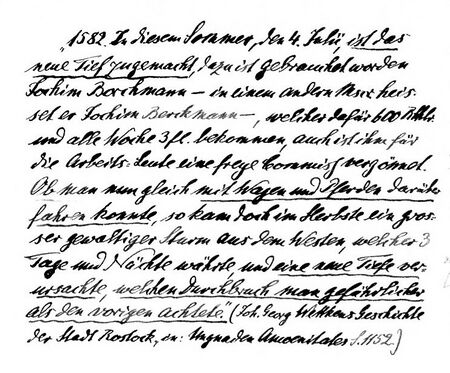 „1582. In diesem Sommer, den 4. Julii, ist das
neue Tief zugemacht, dazu ist gebrauchet worden
Jochim Borchmann – in einem andern Mscr heis-
set er Jochim Berckmann –, welcher dafür 600 Rthlr.
und alle Woche 3 fl. bekommen, auch ist ihm für
die Arbeits=Leute eine freye Commiß vergönnet.
Ob man nun gleich mit Wagen und Pferden darüber
fahren konnte, so kam doch im Herbste ein gros-
ser gewaltiger Sturm aus dem Westen, welcher 3
Tage und Nächte währte, und eine neue Tiefe ver-
ursachte, welchen Durchbruch man gefährlicher
als den vorigen achtete.“ (Joh. Georg Wettkens Geschichte
der Stadt Rostock, in: Ungnaden Amoenitates S. 1152.)